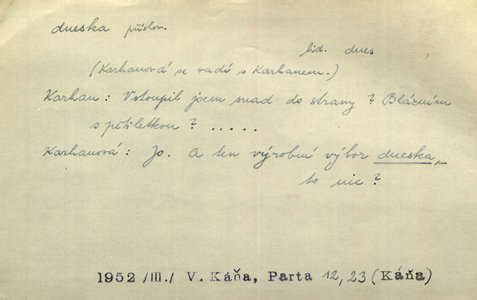 dneska příslov.
lid. dnes
(Karhanová se vadí s Karhanem.)
Karhan: Vstoupil jsem snad do strany? Blázním
s pětiletkou? .....
Karhanová: Jo. A ten výrobní výbor dneska,
to nic?
1952 /III./ V. Káňa, Parta 12, 23 (Káňa)